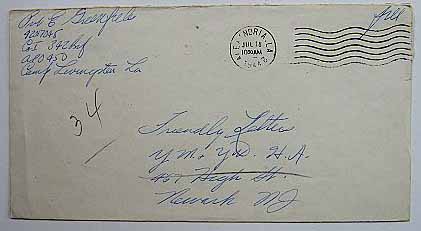 Pvt E Greenfield
42077045
Co I 342 Inf
APO 450
Camp Livingston La
Free
ALEXANDRIA, LA.
JUL 18
1030 AM
1944
34
Friendly Letters
Y.M. & Y.W. H.A.
High St.
Newark NJ